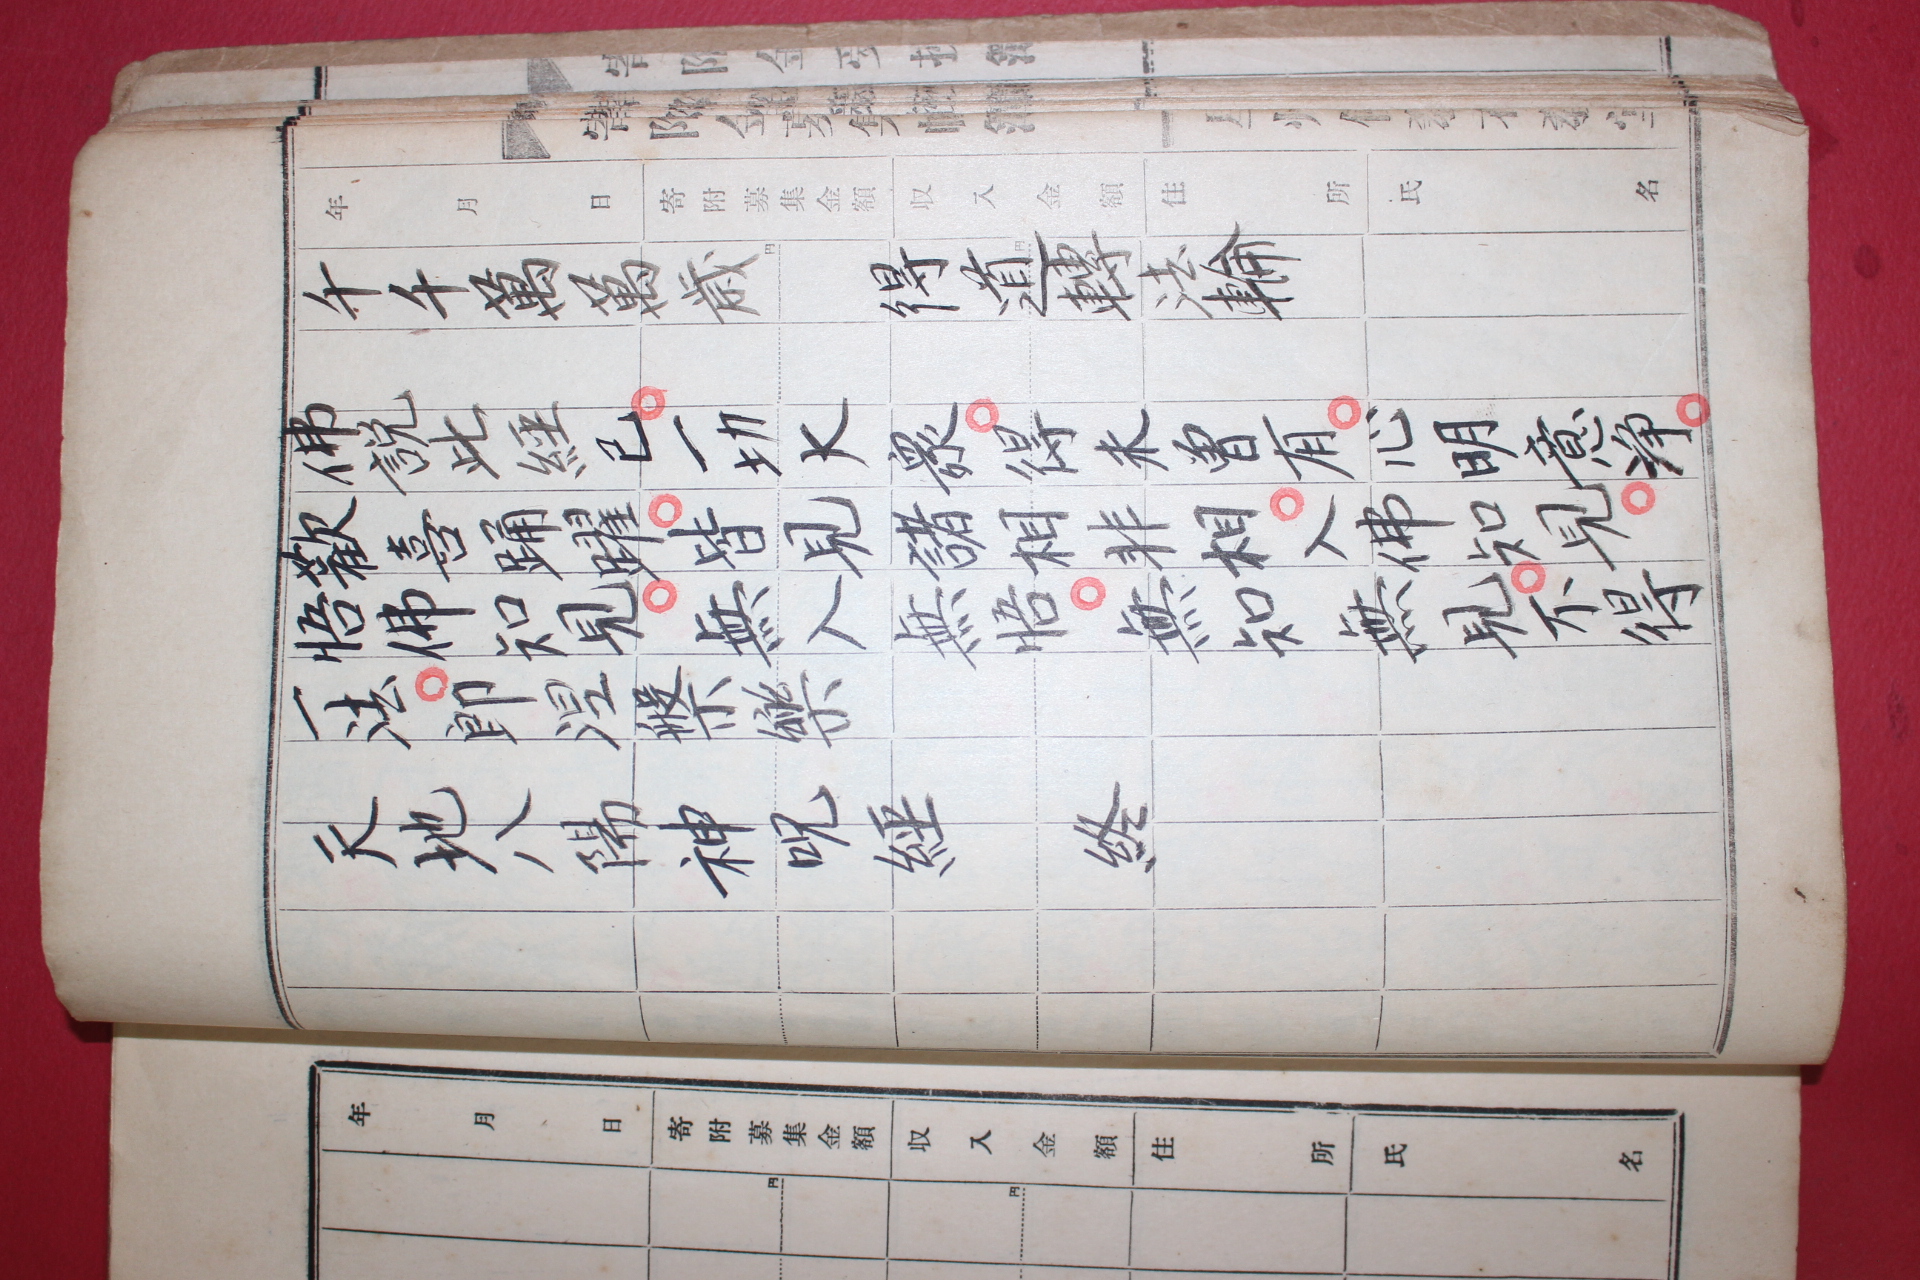 年 月 日 寄附募集金額 収入金額 住所 氏名
円 円
千千萬萬歲 得道轉法輪
佛說此經已○一切大衆○得未曾有○心明意淨○
歡喜踊躍○皆見諸相非相○入佛知見○
悟佛知見○無入無悟○無知無見○不得
一法○即涅槃樂
天地八陽神呪經 終
年 月 日 寄附募集金額 収入金額 住所 氏名
円 円